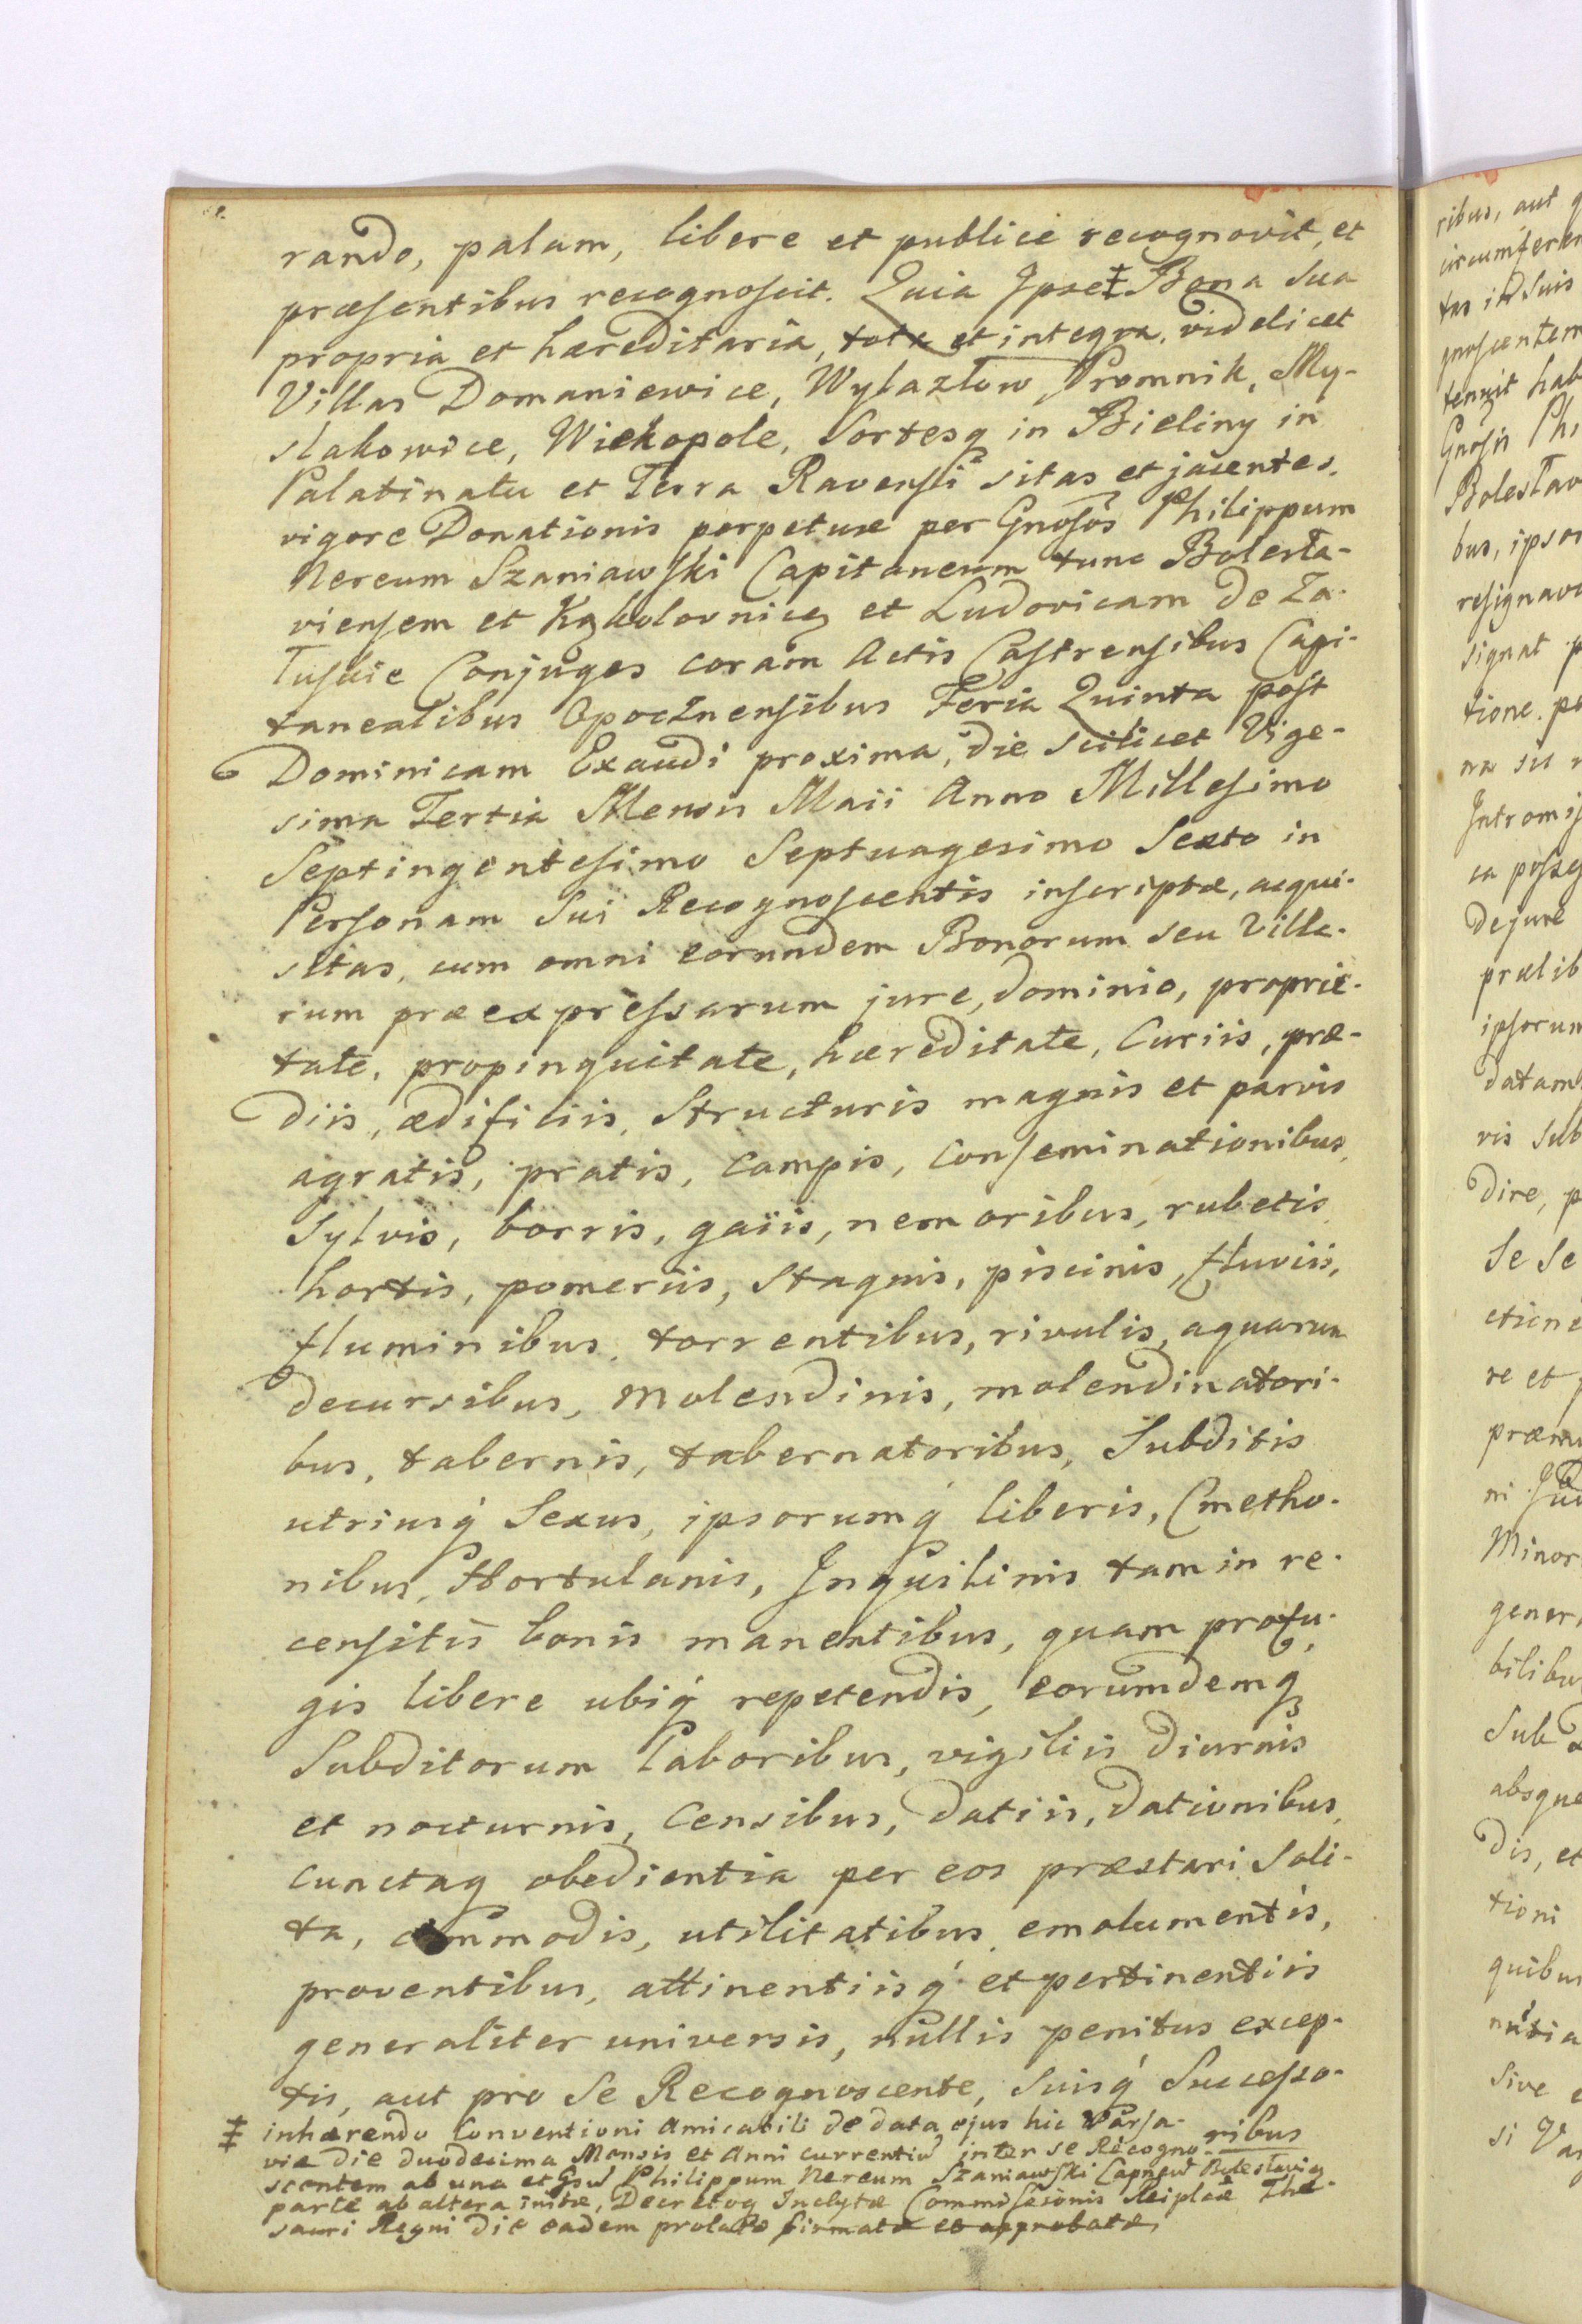 rando, palam, libere et publice recognovit, et
præsentibus recognoscit. Quia Ipse ‡ Bona sua
propria et hæreditaria, tota et integra, videlicet
Villas Domaniewice, Wylazłow, Promnik, My-
slakowice, Wielkopole, Sortesq in Bieliny in
Palatinatu et Terra Ravensi sitas et jacentes,
vigore Donationis perpetuæ per Gnosos Philippum
Nereum Szaniawski Capitaneum tunc Bolesła-
viensem et Kąkolovnicę et Ludovicam de Za-
łuscie Conjuges coram Actis Castrensibus Capi-
tanealibus Opocznensibus Feria Quinta post
Dominicam Exaudi proxima, die scilicet Vige-
sima Tertia Mensis Maii Anno Millesimo
Septingentesimo Septuagesimo Sexto in
Personam sui Recognoscentis inscriptæ, acqui-
sitas, cum omni eorundem Bonorum seu Villa-
rum præexpressarum jure, dominio, proprie-
tate, propinquitate, hæreditate, Curiis, præ-
diis, ædificiis, Structuris magnis et parvis
agratis, pratis, Campis, Conseminationibus,
Sylvis, borris, gaiis, nemoribus, rubetis,
hortis, pomeriis, Stagnis, piscinis, fluviis,
fluminibus, torrentibus, rivulis, aquarum
decursibus, Molendinis, molendinatori-
bus, tabernis, tabernatoribus, Subditis
utriusq́ Sexus, ipsorumq́ liberis, Cmetho-
nibus, Hortulanis, Inquilinis tam in re-
censitis bonis manentibus, quam profu-
gis libere ubiq́ repetendis, eorumdemq
Subditorum Laboribus, vigiliis diurnis
et nocturnis, Censibus, datiis, dationibus,
cunctaq obedientia per eos præstari Soli-
ta, commodis, utilitatibus, emolumentis,
proventibus, attinentiisq́ et pertinentiis
generaliter universis, nullis penitus excep-
tis, aut pro Se Recognoscente, Suisq́ Successo-
ribus
‡ inhærendo Conventioni Amicabili de data ejus hic Varsa-
viæ Die duodecima Mensis et Anni currentiū inter se Recogno-
scentem ab una et Gsu Philippum Nereum Szaniawski Capneu Bolesłavieñ
parte ab altera initæ, Decretoq Inclytæ Commissionis Reiplcæ The-
sauri Regni die eadem prolato firmatæ et approbatæ,